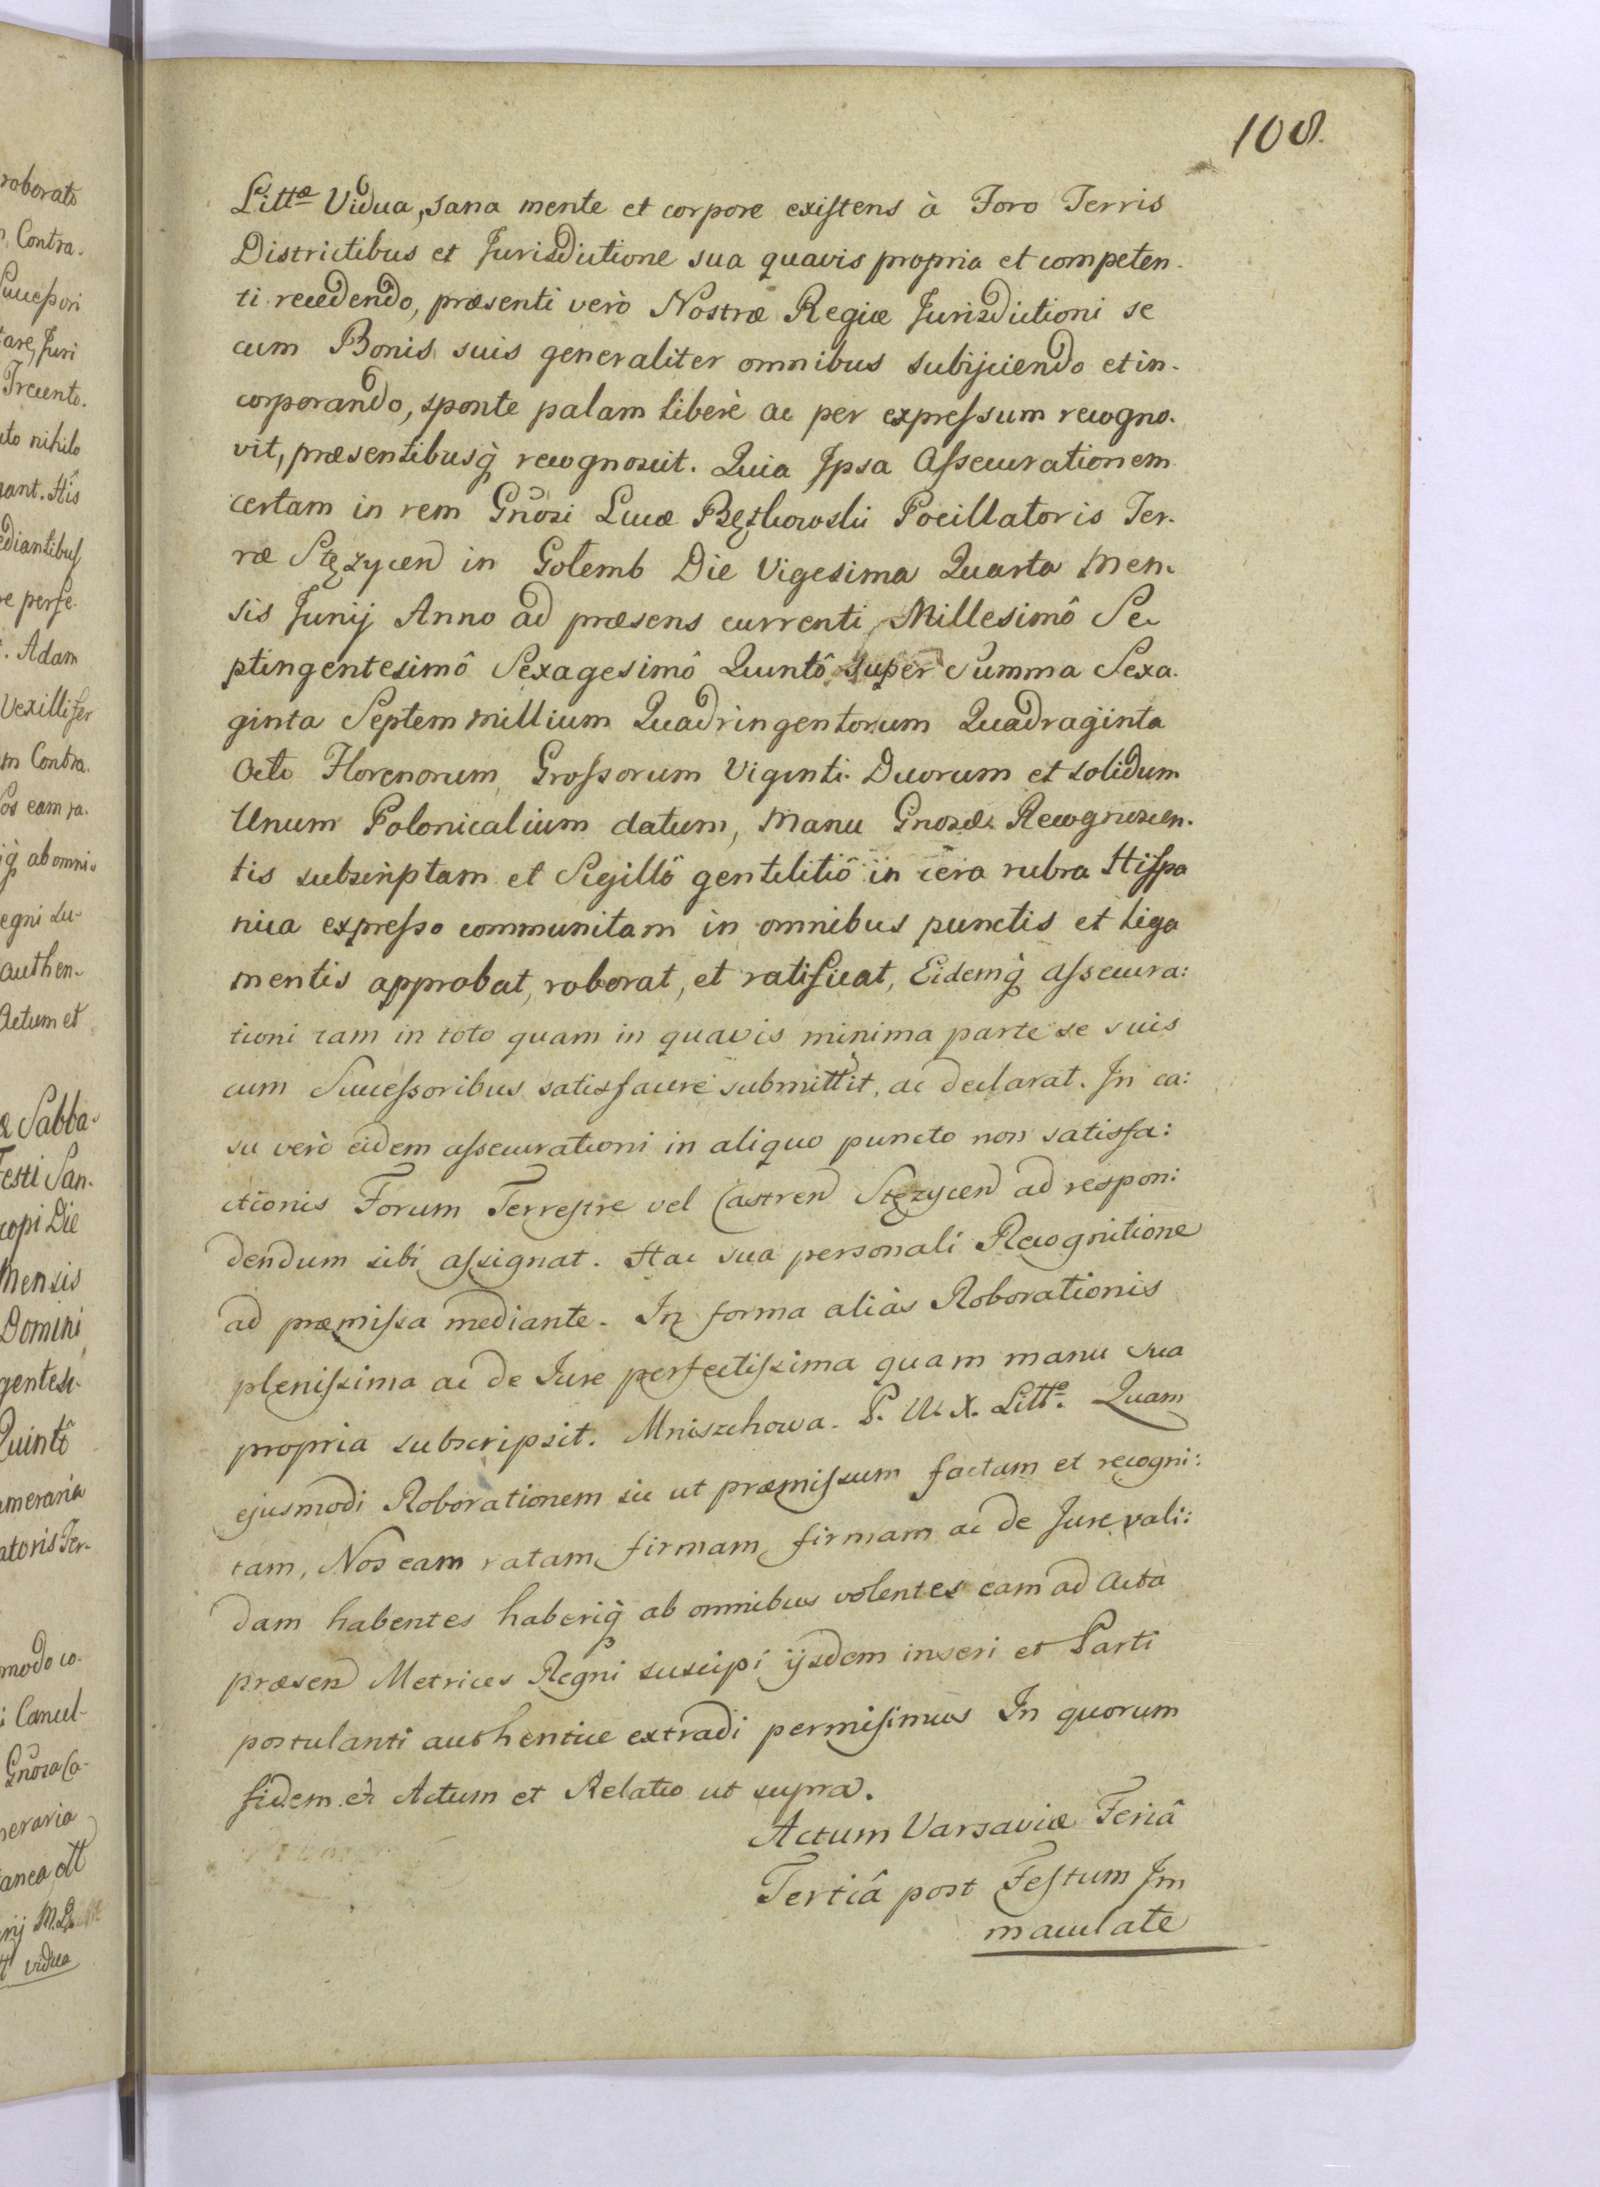 108.
Littæ Vidua, sana mente et corpore existens à Foro Terris
Districtibus et Jurisdictione sua quavis propria et competen-
ti recedendo, præsenti verò Nostræ Regiæ Jurisdictioni se
cum Bonis suis generaliter omnibus subijciendo et in-
corporando, sponte palam liberè ac per expressum recogno-
vit, præsentibusq̀ recognoscit. Quia Ipsa Assecurationem
certam in rem Gnosi Lucæ Pocillatoris Ter-
ræ Stęzycen in Golemb Die Vigesima Quarta Men-
sis Junij Anno ad præsens currenti Millesimô Se-
ptingentesimô Sexagesimô Quintô super Summa Sexa-
ginta Septem millium Quadringentorum Quadraginta
Octo Florenorum, Grossorum Viginti Duorum et solidum
Unum Polonicalium datum, Manu Gnosæ Recognoscen-
tis subscriptam et Sigillô gentilitiô in cera rubra Hispa
nica expresso communitam in omnibus punctis et liga
mentis approbat, roborat, et ratificat, Eidemq̀ assecura:
tioni tam in toto quam in quavis minima parte se suis
cum Successoribus satisfacere submittit, ac declarat. In ca:
su verò eidem assecurationi in aliquo puncto non satisfa:
ctionis Forum Terrestre vel Castren Stęzycen ad respon:
dendum sibi assignat. Hac sua personali Recognitione
ad præmissa mediante. In forma aliàs Roborationis
plenissima ac de Jure perfectissima quam manu sua
propria subscripsit. Mniszchowa. P. W. X. Litto. Quam
ejusmodi Roborationem sic ut præmissum factam et recogni:
tam, Nos eam ratam, firmam, firmam ac de Jure vali:
dam habentes haberiq̀ ab omnibus volentes eam ad Acta
præsen Metrices Regni suscipi ijsdem inseri et Parti
postulanti authentice extradi permisimus In quorum
fidem et Actum et Relatio ut supra.
Actum Varsaviæ Feriâ
Tertiâ post Festum Im
maculate
roborato
Contra-
Successori
tare, Juri
Trecento-
nihilo
gant. His
ediantibus
re perfe-
. Adam
Vexillifer
m Contra-
os eam ra-
q̀ ab omni-
egni su-
authen-
Actum et
Sabba-
Festi San-
copi Die
Mensis
Domini
gentesi-
Quintô
meraria
atoris Ter-
modo co-
i Cancel-
Gnosa Ca-
meraria
tt vidua